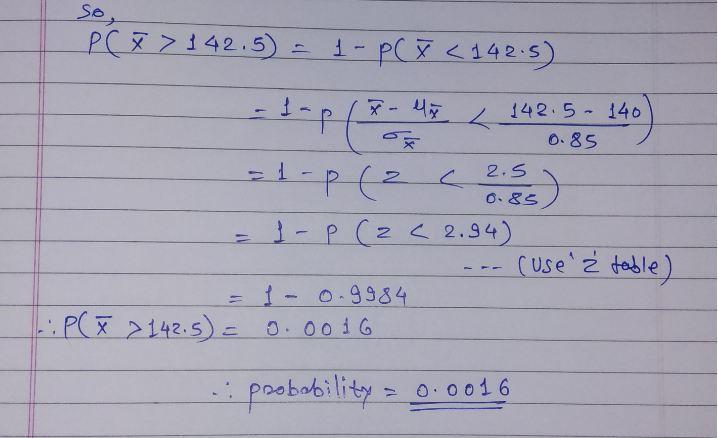 So,
P( x̄ > 142.5) = 1 - P( x̄ < 142.5)
= 1 - P ( x̄ - μx̄ / σx̄ < 142.5 - 140 / 0.85 )
= 1 - P ( z < 2.5 / 0.85 )
= 1 - P ( z < 2.94)
--- (Use 'z' table)
= 1 - 0.9984
∴ P( x̄ > 142.5) = 0.0016
∴ probability = 0.0016